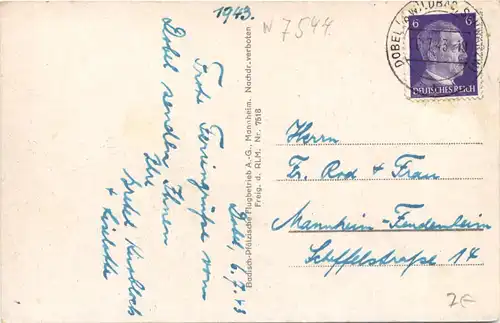 1943.
N 7544.
DOBEL
6
6
DEUTSCHES REICH
Dobel, 6.7.43
Frohe Feriengrüße vom
Dobel senden Ihnen
Ihre
&
Liselotte
Badisch-Pfälzische Flugbetrieb A.-G., Mannheim. Nachdr. verboten
Freig. d. RLM. Nr. 7518
Herrn
Fr. Rod & Frau
Mannheim-Feudenheim
Scheffelstraße 14
2€